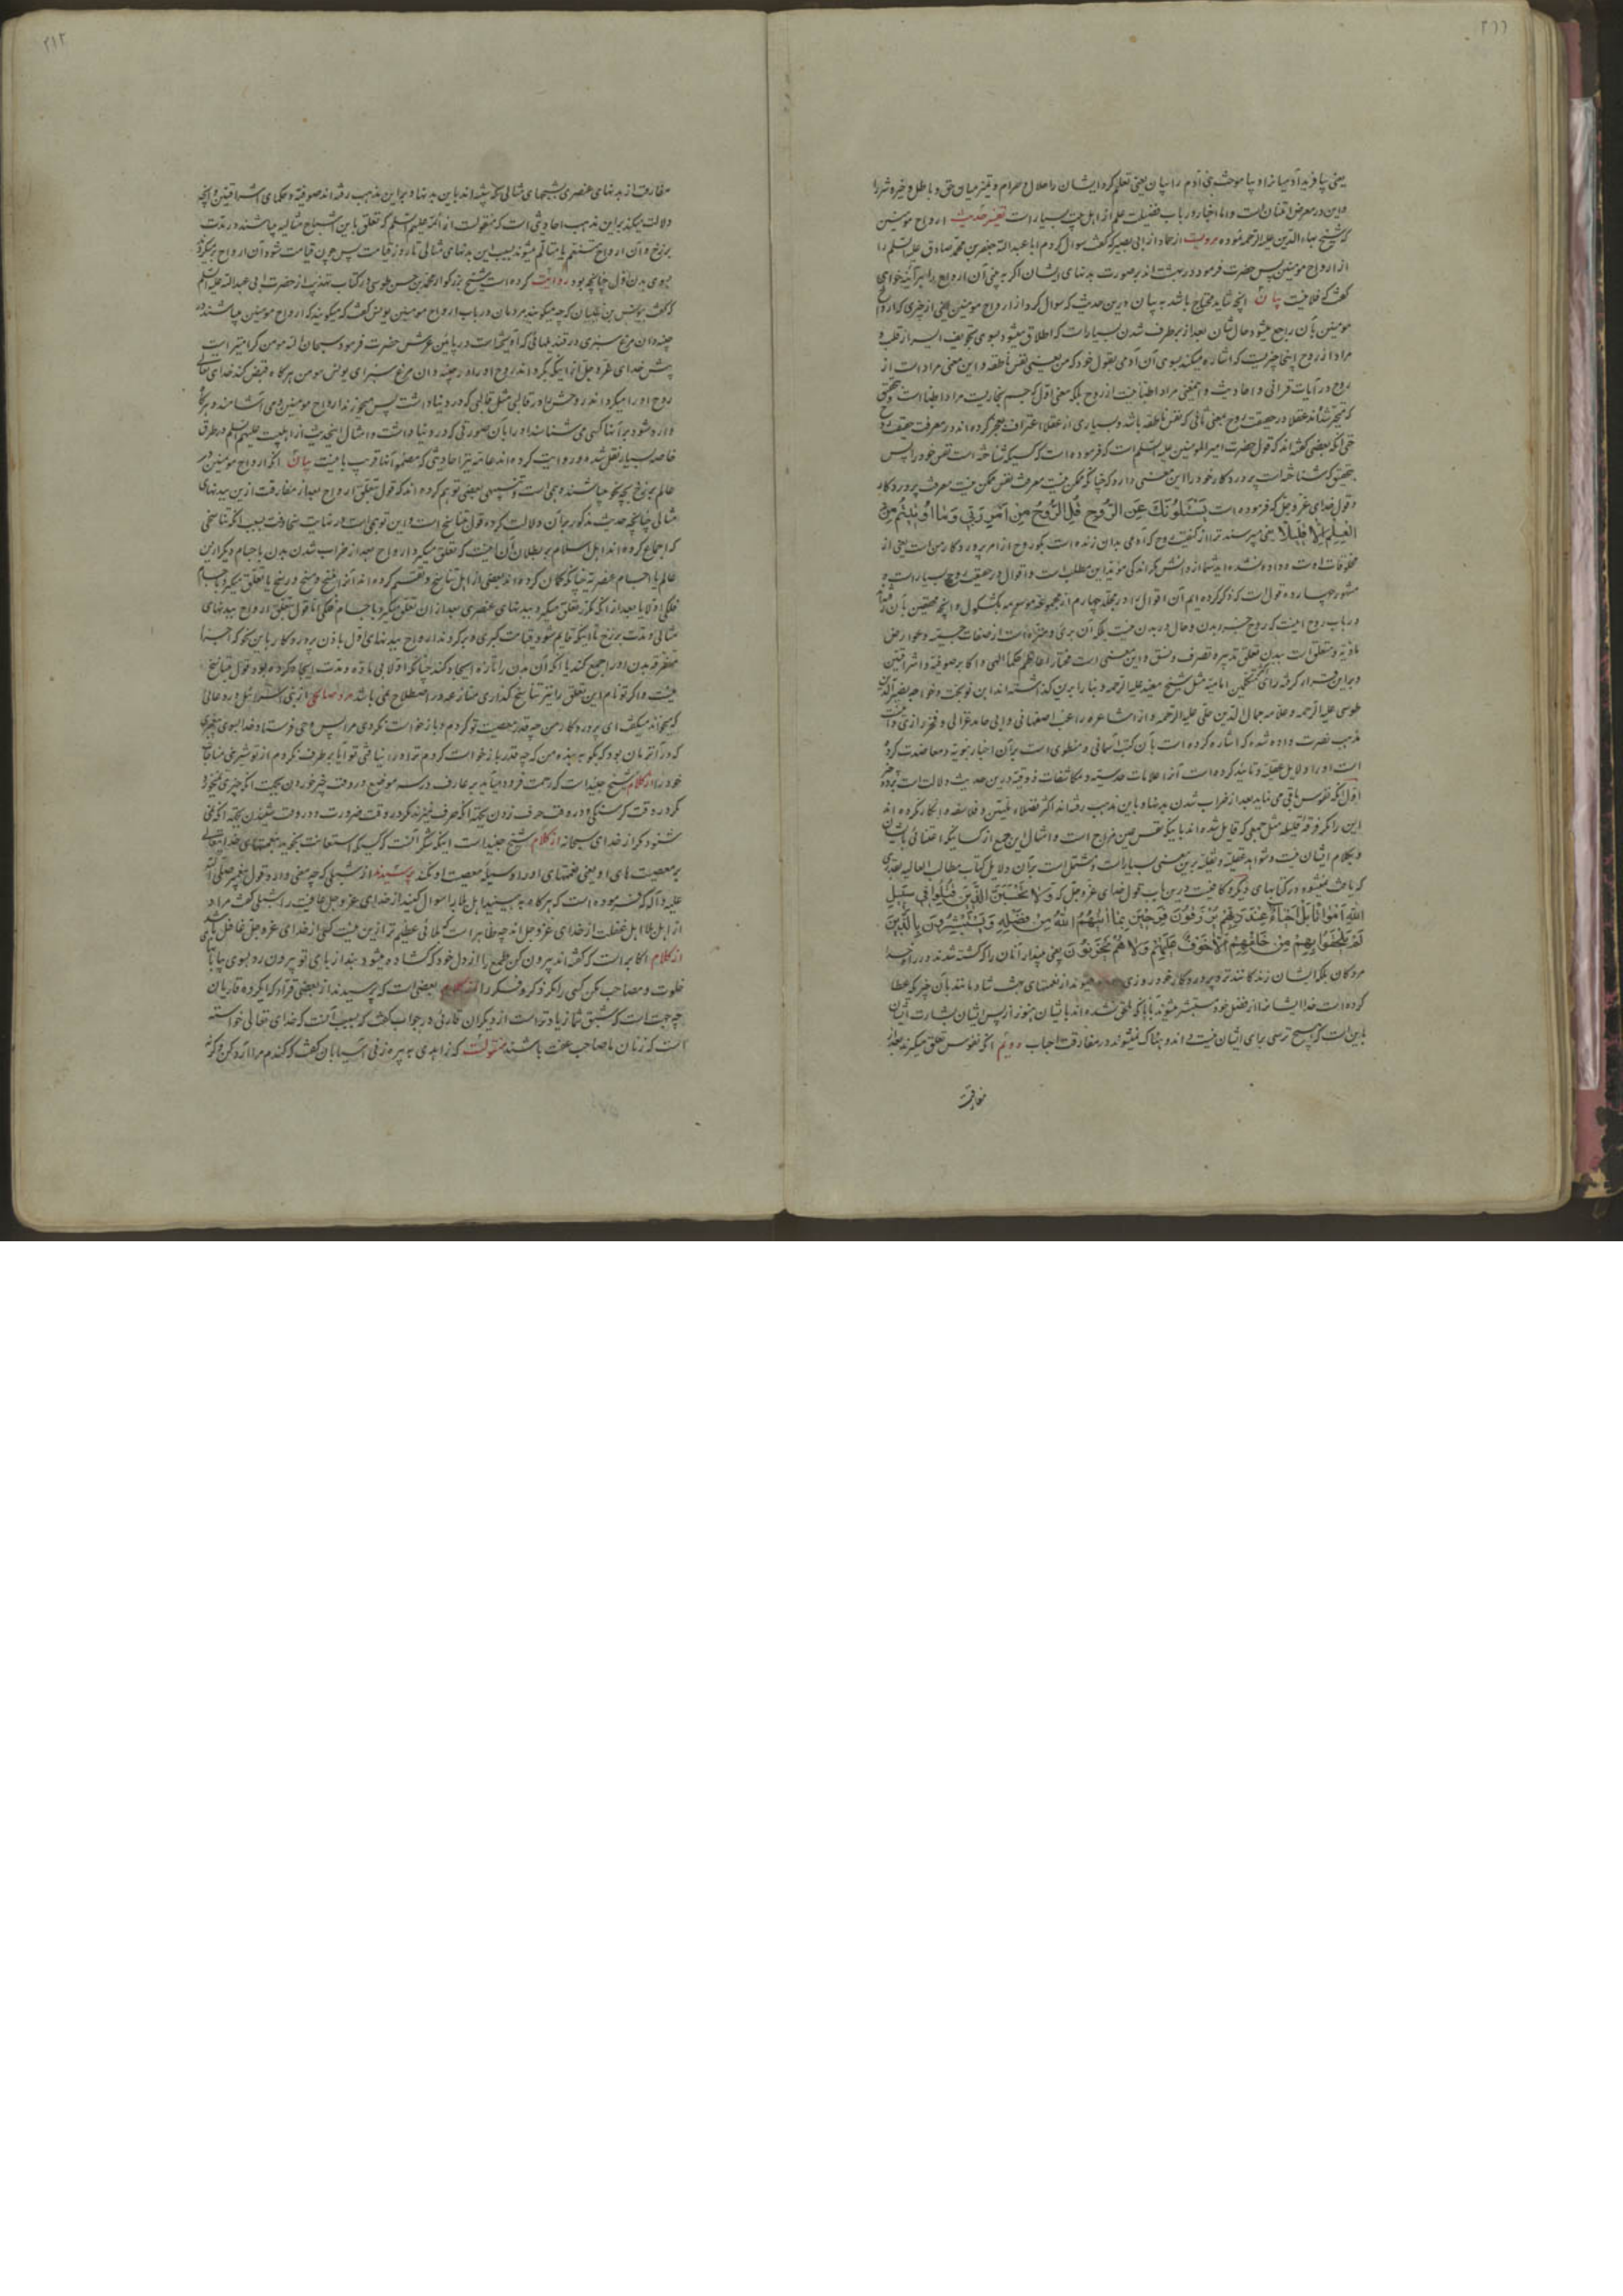 ۲۱۱
یعنی بیافرید آدمیانرا و بیاموخت بنی آدم را بیان یعنی تعلیم کرد ایشان را حلال و حرام و تمیز میان حق و باطل و خیر و شر را
و این در معرض امتنان است و اما اخبار در باب فضیلت علم از اهل بیت بسیار است تفسیر حدیث ارواح مومنین
که شیخ بهاء الدین علیه الرحمه فرموده مرویست از حماد از ابی بصیر که گفت سوال کردم ابا عبدالله جعفر بن محمد صادق علیه السلم را
از ارواح مومنین پس حضرت فرمود در بهشت اند بر صورت بدنهای ایشان اگر به بینی آن ارواح را هر آینه خواهی
گفت که فلانیست بیان آنچه شاید محتاج باشد به بیان درین حدیث که سوال کرد از ارواح مومنین یعنی از چیزی که ارواح
مومنین بآن راجع میشود و حال شان بعد از بر طرف شدن بسیار است که اطلاق میشود بسوی تجویف ایسر از قلب و
مراد از روح اینجا چیزیست که اشاره میکند بسوی آن آدمی بقول خود که من یعنی نفس ناطقه و این معنی مراد است از
روح در آیات قرانی و احادیث و اینمعنی مراد اطبا نیست از روح بلکه معنی اول که جسم بخاریست مراد اطبا است و بتحقیق
که متحیر شده اند عقلا در حقیقت روح بمعنی ثانی که نفس ناطقه باشد و بسیاری از عقلا اعتراف بعجز کرده اند در معرفت حقیقت روح
حتی آنکه بعضی گفته اند که قول حضرت امیر المومنین علیه السلم است که فرموده است که کسیکه شناخته است نفس خود را پس
بتحقیق که شناخته است پروردکار خود را این معنی دارد که چنانکه ممکن نیست معرفت نفس ممکن نیست معرفت پروردکار
و قول خدای عز و جل که فرموده است یَسْئَلُونَكَ عَنِ الرُّوحِ قُلِ الرُّوحُ مِنْ اَمْرِ رَبّی وَمٰا اُوتیتُمْ مِنَ
الْعِلْمِ اِلاّٰ قَلیلاً یعنی میپرسند ترا از کیفیت روح که آدمی بدان زنده است بکو روح از امر پروردکار من است یعنی از
مخلوقات اوست و داده نشده اید شما از دانش مکر اندکی موید این مطلب است و اقوال در حقیقت روح بسیار است و
مشهور چهارده قول است که ذکر کرده ایم آن اقوال را در مجلد چهارم از مجموعه موسومه بکشکول و آنچه محققین بآن رفته اند
در باب روح اینست که روح جزء بدن و حال در بدن نیست بلکه آن بری و منزه است از صفات جسمیه و عوارض
مادیه و متعلق است ببدن تعلق تدبیر و تصرف و نسق و این معنی است مختار اعاظم حکماء الهی و اکابر صوفیه و اشراقیین
و بر این قرار کرفته رأی متکلمین امامیه مثل شیخ مفید علیه الرحمه و بنا را برین کذاشته اند ابن نوبخت و خواجه نصیر الدین
طوسی علیه الرحمه و علامه جمال الدین حلی علیه الرحمه و از اشاعره راغب اصفهانی و ابی حامد غزالی و فخر رازی و
مذهب نصرت داده شده که اشاره کرده است بآن کتب آسمانی و منطوی است برآن اخبار نبویه و معاضدت کرده
است او را دلایل عقلیه و تایید کرده است آنرا علامات حدسیه و مکاشفات ذوقیه درین حدیث دلالت است بر
اول آنکه نفوس باقی می ماند بعد از خراب شدن بدنها و باین مذهب رفته اند اکثر عقلاء ملیین و فلاسفه و انکار نکرده اند
این را مکر فرقه قلیله مثل جمعی که قایل شده اند باینکه نفس عین مزاج است و امثال این جمع از کسانیکه اعتنائی بایشان
و بکلام ایشان نیست و شواهد عقلیه و نقلیه برین معنی بسیار است و مشتمل است برآن دلایل کتاب مطالب العالیه بقدری
که یافت نمیشود در کتابهای دیکر و کافیست درین باب قول خدای عز و جل که وَلاٰ تَحْسَبَنَّ الَّذینَ قُتِلُوا فی سَبیلِ
اللّهِ اَمْوٰاتاً بَلْ اَحْیٰاءٌ عِنْدَ رَبِّهِمْ یُرْزَقُونَ فَرِحینَ بِمٰا اٰتٰیهُمُ اللّهُ مِنْ فَضْلِهِ وَیَسْتَبْشِرُونَ بِالَّذینَ
لَمْ یَلْحَقُوا بِهِمْ مِنْ خَلْفِهِمْ اَلاّٰ خَوْفٌ عَلَیْهِمْ وَلاٰ هُمْ یَحْزَنُونَ یعنی مپندار آنان را که کشته شدند در راه خدا
مردکان بلکه ایشان زندکانند نزد پروردکار خود روزی میشوند از نعمتهای بهشت شادمانند بآن چیز که عطا
کرده است خدا ایشانرا از فضل خود و مستبشر میشوند بآنها که ملحق نشده اند بایشان هنوز از پس ایشان بشارت ایشان
باین است که هیچ ترسی برای ایشان نیست و اندوهناک نمیشوند در مفارقت احباب دویم آنکه نفوس تعلق میکیرند بعد از
مفارقت
۲۱۲
مفارقت از بدنهای عنصری بشبحهای مثالی که شبیه اند باین بدنها و براین مذهب رفته اند صوفیه و حکمای اشراقیین و آنچه
دلالت میکند براین مذهب احادیثی است که منقولست از ائمه علیهم السلم که تعلق باین اشباح مثالیه میباشند در مدت
برزخ و آن ارواح متنعم یا متالم میشوند بسبب این بدنهای مثالی تا روز قیامت پس چون قیامت شود آن ارواح برمیکردند
بسوی بدن اول چنانچه بود روایت کرده است شیخ بزرکوار محمد بن حسن طوسی در کتاب تهذیب از حضرت ابی عبدالله علیه السلم
که گفت بیونس بن ظبیان که چه میکویند مردمان در باب ارواح مومنین یونس گفت که میکویند که ارواح مومنین میباشند در
چینه دان مرغ سبزی در قندیلهائی که آویخته است در پائین عرش حضرت فرمود سبحان الله مومن کرامیتر است
پیش خدای عز و جل از اینکه بکرداند روح او را در چینه دان مرغ سبز ای یونس مومن هرکاه قبض کند خدای تعالی
روح او را میکرداند روحش را در قالبی مثل قالبی که در دنیا داشت پس میخورند ارواح مومنین و می آشامند و هرکاه
وارد شود بر آنها کسی می شناسند او را بآن صورتی که در دنیا داشت و امثال اینحدیث از اهلبیت علیهم السلم در طرق
خاصه بسیار نقل شده و روایت کرده اند عامه نیز احادیثی که مضمون آنها قریب باینست بیان آنکه ارواح مومنین در
عالم برزخ بچه نحو میباشند و تنبیهی بعضی توهم کرده اند که قول بتعلق ارواح بعد از مفارقت ازین بدنهای
مثالی چنانچه حدیث مذکور برآن دلالت کرده قول بتناسخ است و این توهمی است در نهایت سخافت بسبب آنکه تناسخی
که اجماع کرده اند اهل اسلام بر بطلان آن اینست که تعلق میکیرد ارواح بعد از خراب شدن بدن باجسام دیکر ازین
عالم یا اجسام عنصریه چنانکه کمان کرده اند بعضی از اهل تناسخ و تقسیم کرده اند آنرا بنسخ و مسخ و رسخ یا تعلق میکیرد باجسام
فلکی اولا یا بعد از آنکه تعلق میکیرد ببدنهای عنصری بعد از ان تعلق میکیرد باجسام فلکی اما قول بتعلق ارواح ببدنهای
مثالی در مدت برزخ تا اینکه قایم شود قیامت کبری و برکردند ارواح ببدنهای اول باذن پروردکار باین نحو که اجزا
متفرقه بدن را جمع کند یا آنکه آن بدن را تازه ایجاد کند چنانکه اولا بی ماده و مدت ایجاد کرده بود قول بتناسخ
نیست و اکر تو نام این تعلق را نیز تناسخ کذاری منازعه در اصطلاح می باشد مرد صالحی از بنی اسرائیل در دعائی
که میخواند میکفت ای پروردکار من چه قدر معصیت تو کردم و بازخواست نکردی مرا پس وحی فرستاد خدا بسوی پیغمبری
که در آنزمان بود که بکو به بنده من که چه قدر بازخواست کردم ترا و در نیافتی تو آیا بر طرف نکردم از تو شیرینی مناجات
خود را از کلام شیخ جنید است که رحمت فرود میآید بر عارف در سه موضع در وقت چیز خوردن بجهت آنکه چیزی نمیخورد
مکر در وقت کرسنکی و در وقت حرف زدن بجهة آنکه حرف نمیزند مکر در وقت ضرورت و در وقت شنیدن بجهة آنکه نمی
شنود مکر از خدای سبحانه از کلام شیخ جنید است اینکه شکر آنست که کسیکه استعانت نجوید بنعمتهای خدایتعالی
بر معصیت های او یعنی نعمتهای او را وسیلهٔ معصیت او نکند پرسیدند از شبلی که چه معنی دارد قول پیغمبر صلی الله
علیه وآله که فرموده است که هرکاه به بینید اهل بلا را سوال کنید از خدای عز و جل عافیت را شبلی گفت مراد
از اهل بلا اهل غفلت از خدای عز و جل اند چه ظاهر است که بلائی عظیم تر ازین نیست که کسی از خدای عز و جل غافل باشد
از کلام اکابر است که گفته اند بیرون کن طمع را از دل خود که کشاده میشود بند از پای تو بیرون رو بسوی بیابانهای
خلوت و مصاحب مکن کسی را مکر ذکر و فکر را از کلام بعضی است که پرسیدند از بعضی قراء که ای کرده قاریان
چه جهت است که شبق شما زیادتر است از دیکران قاریی در جواب گفت که بسبب آنست که خدای تعالی خواسته
است که زنان ما صاحب عفت باشند منقولست که زاهدی به پیره زنی آسیابان گفت که کندم مرا آرد کن و کرنه